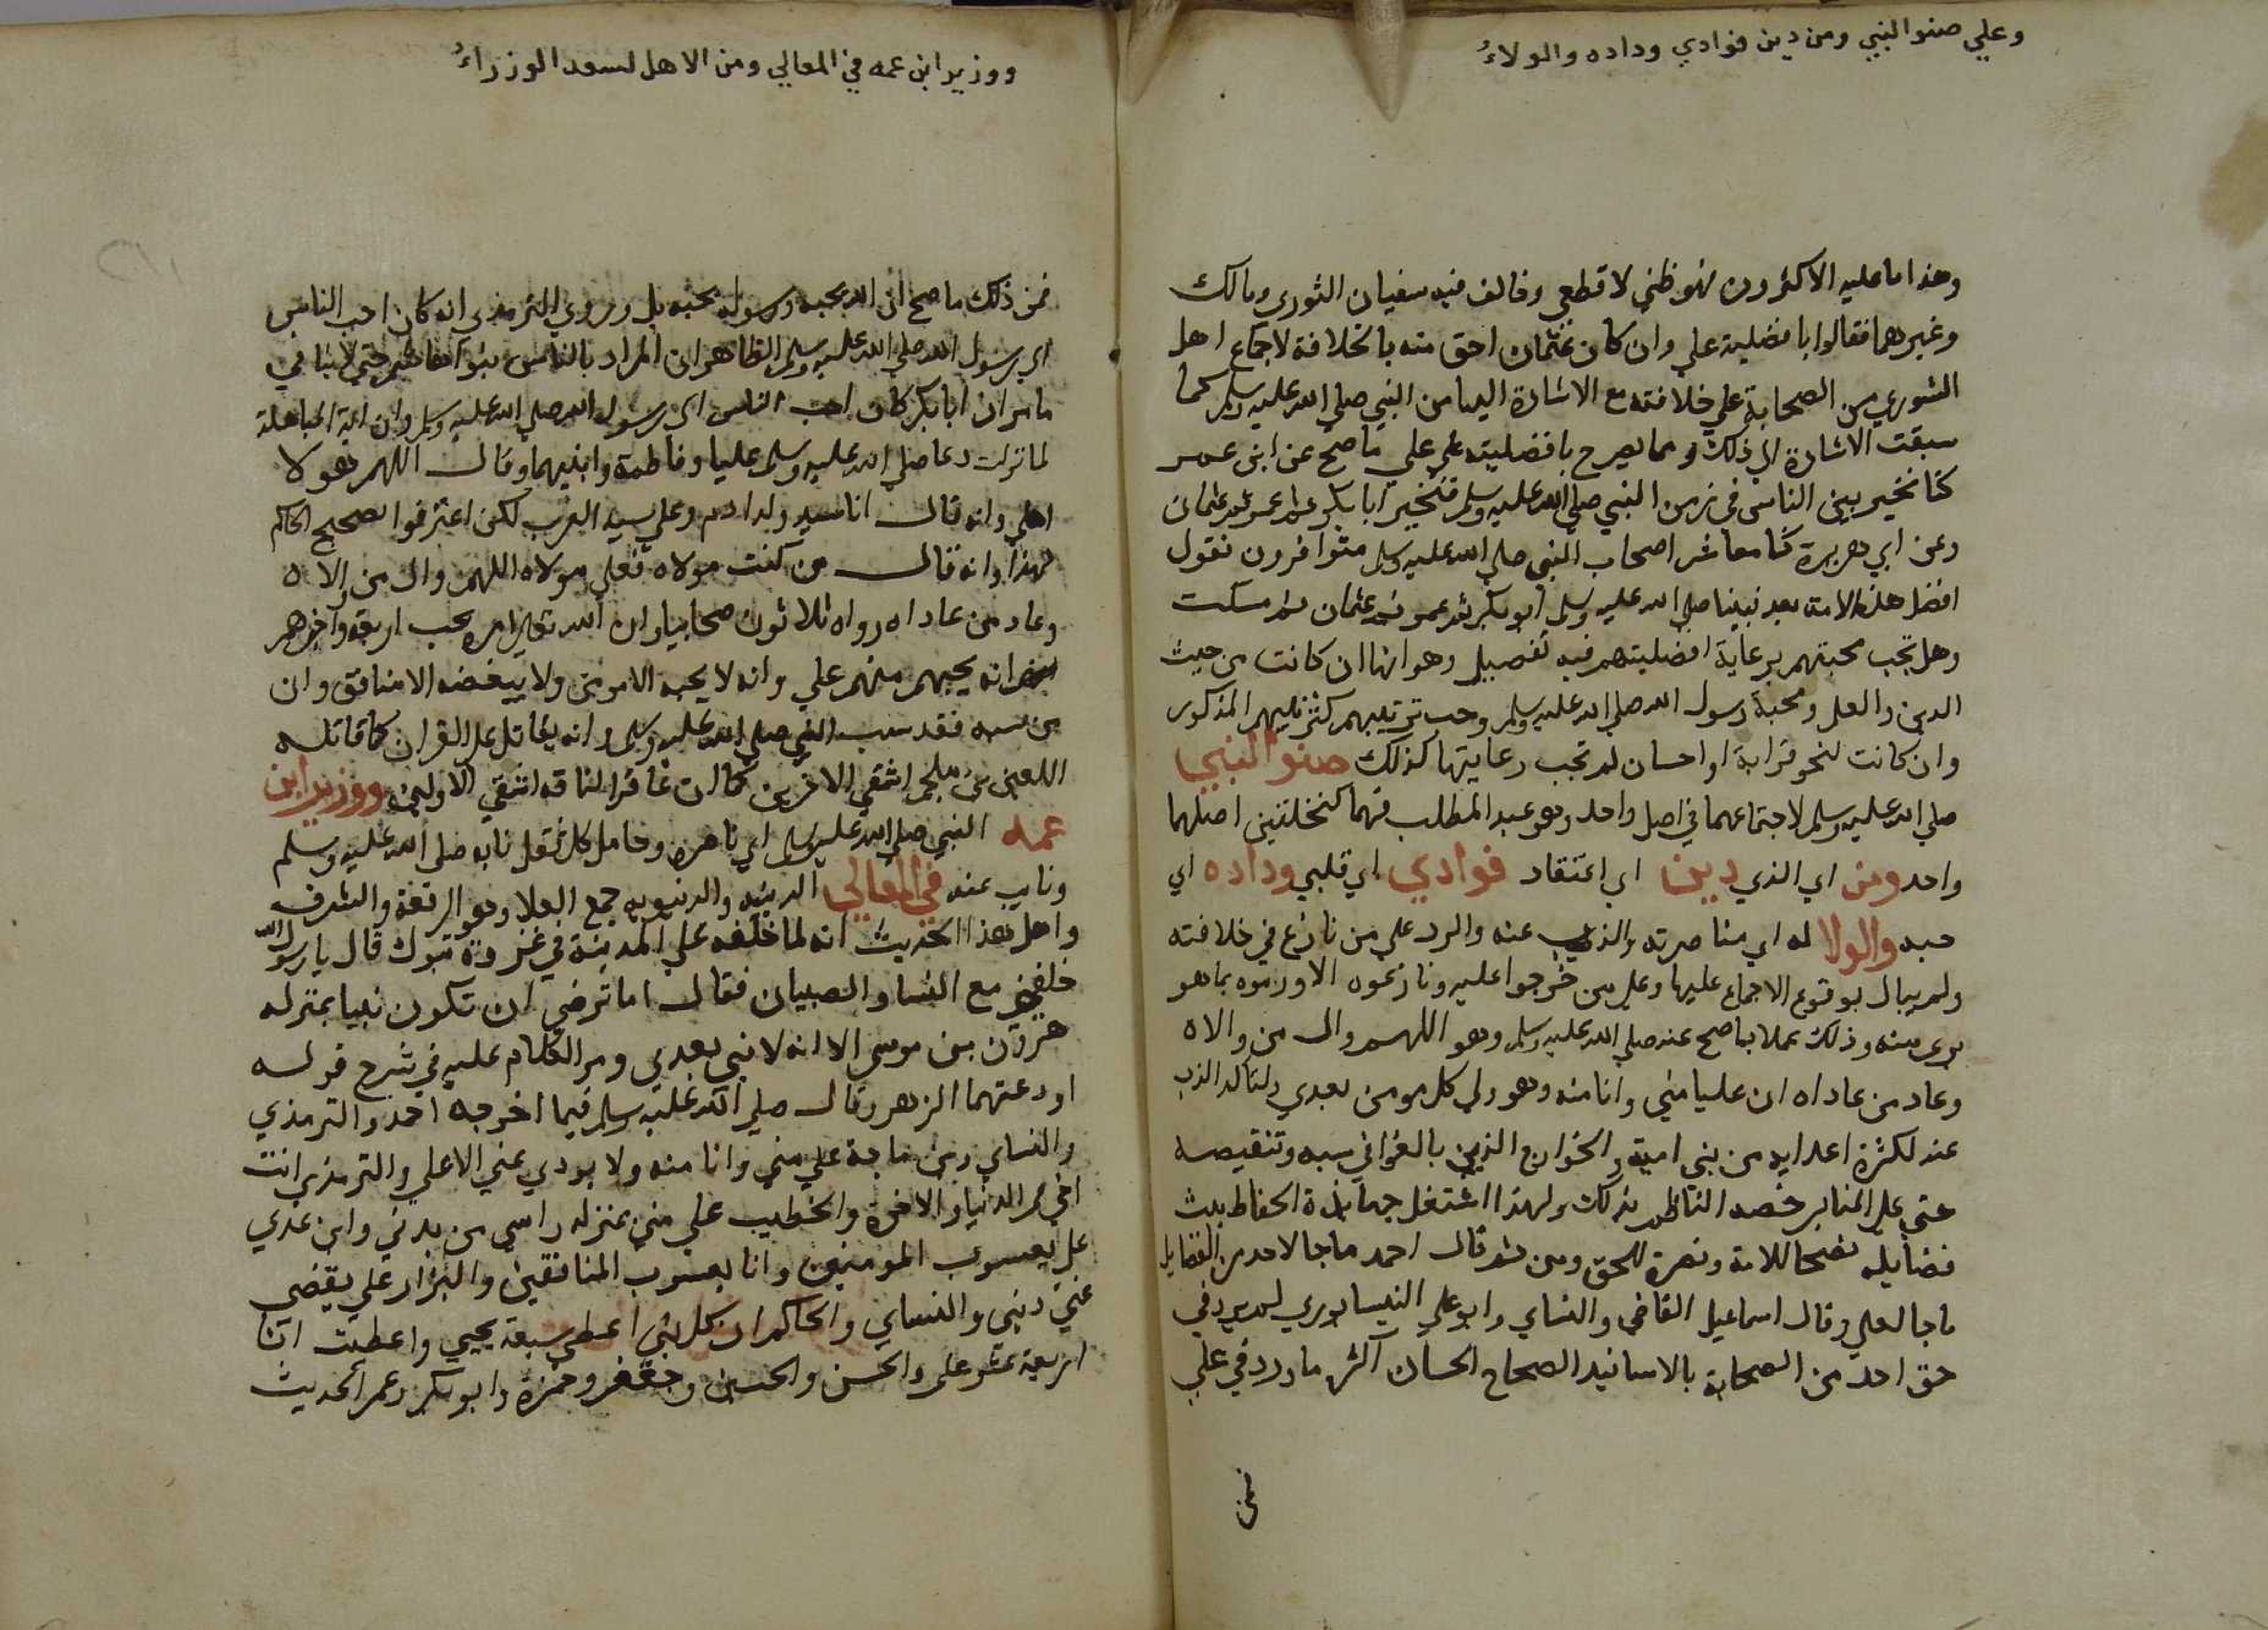 وعلي صنو النبي ومن دين فوادي وداده والولاءُ
وهذا ما عليه الاكثرون فهو ظني لا قطعي وخالف فيه سفيان الثوري ومالك
وغيرهما فقالوا بافضلية علي وان كان عثمان احق منه بالخلافة لاجماع اهل
الشوري من الصحابة علي خلافته مع الاشارة اليها من النبي صلي الله عليه وسلم كما
سبقت الاشارة الي ذلك ومما يصرح بافضليته علي علي ما صح عن ابن عمر
كنا نخير بين الناس في زمن النبي صلي الله عليه وسلم فنخير ابا بكر ثم عمر ثم عثمان
وعن ابي هريرة كنا معاشر اصحاب النبي صلي الله عليه وسلم متوافرون نقول
افضل هذه الامة بعد نبينا صلي الله عليه وسلم ابو بكر ثم عمر ثم عثمان ثم نسكت
وهل تجب محبتهم برعاية افضليتهم فيه تفصيل وهو انها ان كانت من حيث
الدين والعلم ومحبة رسول الله صلي الله عليه وسلم وجب ترتيبهم كترتيبهم المذكور
وان كانت لنحو قرابة او احسان لم تجب رعايتها كذلك صنو النبي
صلي الله عليه وسلم لاجتماعهما في اصل واحد وهو عبد المطلب فهما كنخلتين اصلهما
واحد ومن اي الذي دين اي اعتقاد فوادي اي قلبي وداده اي
حبه والولا له اي مناصرته والذب عنه والرد علي من نازع في خلافته
ولم يبال بوقوع الاجماع عليها وعلي من خرجوا عليه ونازعوه الا ورموه بما هو
بري منه وذلك عملا بما صح عنه صلي الله عليه وسلم وهو اللهم وال من والاه
وعاد من عاداه ان عليا مني وانا منه وهو ولي كل مومن بعدي ولتاكد الذب
عنه لكثرة اعدايه من بني امية والخوارج الذين بالغوا في سبه وتنقيصه
حتي علي المنابر خصه الناظم بذلك ولهذا اشتغل جهابذة الحفاظ ببث
فضايله نصحا للامة ونصرة للحق ومن ثم قال احمد ما جا لاحد من الفضايل
ما جا لعلي وقال اسماعيل القاضي والنساي وابو علي النيسابوري لم يرد في
حق احد من الصحابة بالاسانيد الصحاح الحسان اكثر ما ورد في علي
فمن
ووزير ابن عمه في المعالي ومن الاهل تسعد الوزراءُ
فمن ذلك ما صح ان الله يحبه ورسوله يحبه بل وروي الترمذي انه كان احب الناس
الي رسول الله صلي الله عليه وسلم الظاهر ان المراد بالناس بنو هاشم حتي لا ينافي
ما مر ان ابا بكر كان احب الناس الي رسول الله صلي الله عليه وسلم وان اية المباهلة
لما نزلت دعا صلي الله عليه وسلم عليا وفاطمة وابنيهما وقال اللهم هولا
اهلي وانه قال انا سيد ولد ادم وعلي سيد العرب لكن اعترضوا تصحيح الحاكم
لهذا وانه قال من كنت مولاه فعلي مولاه اللهم وال من والاه
وعاد من عاداه رواه ثلاثون صحابيا وان الله تعالي امره بحب اربعة واخبرهم
انه يحبهم منهم علي وانه لا يحبه الا مومن ولا يبغضه الا منافق وان
من سبه فقد سب النبي صلي الله عليه وسلم وانه يقاتل علي القران كما قاتله
اللعين بن ملجم اشقي الاخرين كما ان عاقر الناقه اشقي الاولين ووزير ابن
عمه النبي صلي الله عليه وسلم اي ناصره وحامل كل ثقل نابه صلي الله عليه وسلم
ونايب عنه في المعالي الدينيه والدنيويه جمع العلا وهو الرفعة والشرف
واصل هذا الحديث انه لما خلفه علي المدينة في غزوة تبوك قال يا رسول الله
خلفتني مع النسا والصبيان فقال اما ترضي ان تكون نبيا بمنزله
هرون من موسي الا انه لا نبي بعدي ومر الكلام عليه في شرح قوله
اودعتهما الزهر وقال صلي الله عليه وسلم فيما اخرجه احمد والترمذي
والنساي وبن ماجة علي مني وانا منه ولا يودي عني الا علي والترمذي انت
اخي في الدنيا والاخرة والخطيب علي مني بمنزله راسي من بدني وابن عدي
علي يعسوب المومنين وانا يعسوب المنافقين والبزار علي يقضي
عني ديني والنساي والحاكم ان كل نبي اعطي سبعة يحيي واعطيت انا
اربعة عشر علي والحسن والحسين وجعفر وحمزة وابو بكر وعمر الحديث